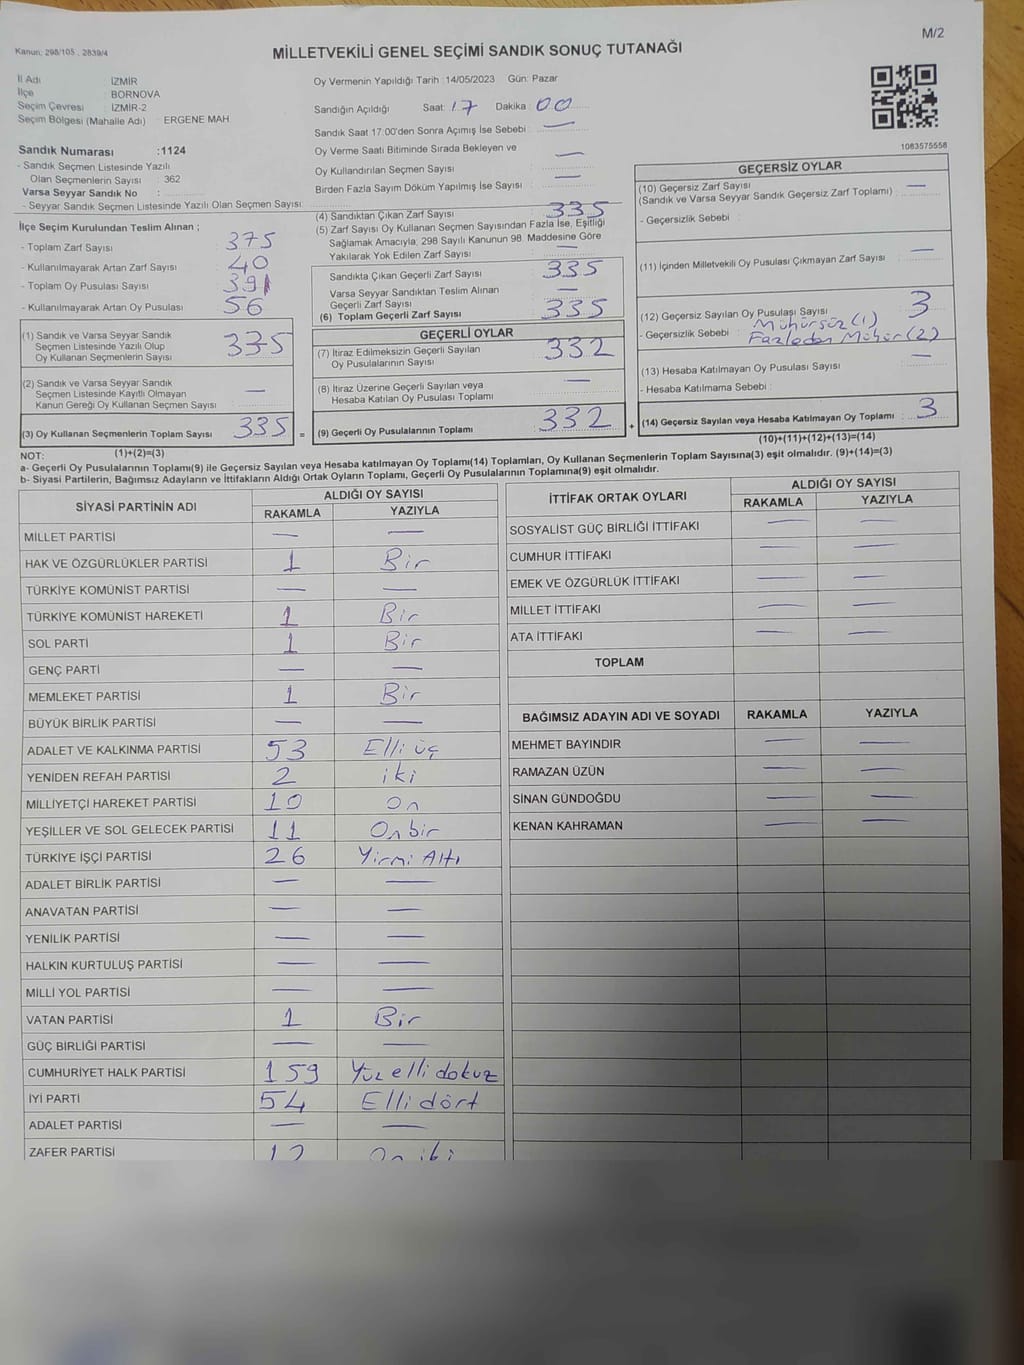 M/2
Kanun: 298/105 , 2839/4
MİLLETVEKİLİ GENEL SEÇİMİ SANDIK SONUÇ TUTANAĞI
İl Adı : İZMİR
İlçe : BORNOVA
Seçim Çevresi : İZMİR-2
Seçim Bölgesi (Mahalle Adı) : ERGENE MAH
Sandık Numarası :1124
- Sandık Seçmen Listesinde Yazılı
Olan Seçmenlerin Sayısı : 362
Varsa Seyyar Sandık No :
- Seyyar Sandık Seçmen Listesinde Yazılı Olan Seçmen Sayısı:
Oy Vermenin Yapıldığı Tarih :14/05/2023 Gün: Pazar
Sandığın Açıldığı Saat: 17 Dakika : 00
Sandık Saat 17:00'den Sonra Açımış İse Sebebi : —
Oy Verme Saati Bitiminde Sırada Bekleyen ve
Oy Kullandırılan Seçmen Sayısı : —
Birden Fazla Sayım Döküm Yapılmış İse Sayısı : —
1083575558
İlçe Seçim Kurulundan Teslim Alınan ;
- Toplam Zarf Sayısı : 375
- Kullanılmayarak Artan Zarf Sayısı : 40
- Toplam Oy Pusulası Sayısı : 391
- Kullanılmayarak Artan Oy Pusulası : 56
(1) Sandık ve Varsa Seyyar Sandık
Seçmen Listesinde Yazılı Olup
Oy Kullanan Seçmenlerin Sayısı : 335
(2) Sandık ve Varsa Seyyar Sandık
Seçmen Listesinde Kayıtlı Olmayan
Kanun Gereği Oy Kullanan Seçmen Sayısı : —
(3) Oy Kullanan Seçmenlerin Toplam Sayısı : 335 =
(4) Sandıktan Çıkan Zarf Sayısı : 335
(5) Zarf Sayısı Oy Kullanan Seçmen Sayısından Fazla İse, Eşitliği
Sağlamak Amacıyla, 298 Sayılı Kanunun 98. Maddesine Göre
Yakılarak Yok Edilen Zarf Sayısı : —
Sandıkta Çıkan Geçerli Zarf Sayısı : 335
Varsa Seyyar Sandıktan Teslim Alınan
Geçerli Zarf Sayısı : —
(6) Toplam Geçerli Zarf Sayısı : 335
GEÇERLİ OYLAR
(7) İtiraz Edilmeksizin Geçerli Sayılan
Oy Pusulalarının Sayısı : 332
(8) İtiraz Üzerine Geçerli Sayılan veya
Hesaba Katılan Oy Pusulası Toplamı : —
(9) Geçerli Oy Pusulalarının Toplamı : 332 +
GEÇERSİZ OYLAR
(10) Geçersiz Zarf Sayısı : —
(Sandık ve Varsa Seyyar Sandık Geçersiz Zarf Toplamı)
- Geçersizlik Sebebi :
(11) İçinden Milletvekili Oy Pusulası Çıkmayan Zarf Sayısı : —
(12) Geçersiz Sayılan Oy Pusulası Sayısı : 3
- Geçersizlik Sebebi : Mühürsüz (1)
Fazladan Mühür (2)
(13) Hesaba Katılmayan Oy Pusulası Sayısı : —
- Hesaba Katılmama Sebebi :
(14) Geçersiz Sayılan veya Hesaba Katılmayan Oy Toplamı : 3
NOT: (1)+(2)=(3) (10)+(11)+(12)+(13)=(14)
a- Geçerli Oy Pusulalarının Toplamı(9) ile Geçersiz Sayılan veya Hesaba katılmayan Oy Toplamı(14) Toplamları, Oy Kullanan Seçmenlerin Toplam Sayısına(3) eşit olmalıdır. (9)+(14)=(3)
b- Siyasi Partilerin, Bağımsız Adayların ve İttifakların Aldığı Ortak Oyların Toplamı, Geçerli Oy Pusulalarının Toplamına(9) eşit olmalıdır.
SİYASİ PARTİNİN ADI ALDIĞI OY SAYISI
RAKAMLA YAZIYLA
MİLLET PARTİSİ — —
HAK VE ÖZGÜRLÜKLER PARTİSİ 1 Bir
TÜRKİYE KOMÜNİST PARTİSİ — —
TÜRKİYE KOMÜNİST HAREKETİ 1 Bir
SOL PARTİ 1 Bir
GENÇ PARTİ — —
MEMLEKET PARTİSİ 1 Bir
BÜYÜK BİRLİK PARTİSİ — —
ADALET VE KALKINMA PARTİSİ 53 Elli üç
YENİDEN REFAH PARTİSİ 2 iki
MİLLİYETÇİ HAREKET PARTİSİ 10 On
YEŞİLLER VE SOL GELECEK PARTİSİ 11 On bir
TÜRKİYE İŞÇİ PARTİSİ 26 Yirmi Altı
ADALET BİRLİK PARTİSİ — —
ANAVATAN PARTİSİ — —
YENİLİK PARTİSİ — —
HALKIN KURTULUŞ PARTİSİ — —
MİLLİ YOL PARTİSİ — —
VATAN PARTİSİ 1 Bir
GÜÇ BİRLİĞİ PARTİSİ — —
CUMHURİYET HALK PARTİSİ 159 Yüz elli dokuz
İYİ PARTİ 54 Elli dört
ADALET PARTİSİ — —
ZAFER PARTİSİ 12 On iki
İTTİFAK ORTAK OYLARI ALDIĞI OY SAYISI
RAKAMLA YAZIYLA
SOSYALİST GÜÇ BİRLİĞİ İTTİFAKI — —
CUMHUR İTTİFAKI — —
EMEK VE ÖZGÜRLÜK İTTİFAKI — —
MİLLET İTTİFAKI — —
ATA İTTİFAKI — —
TOPLAM
BAĞIMSIZ ADAYIN ADI VE SOYADI RAKAMLA YAZIYLA
MEHMET BAYINDIR — —
RAMAZAN ÜZÜN — —
SİNAN GÜNDOĞDU — —
KENAN KAHRAMAN — —